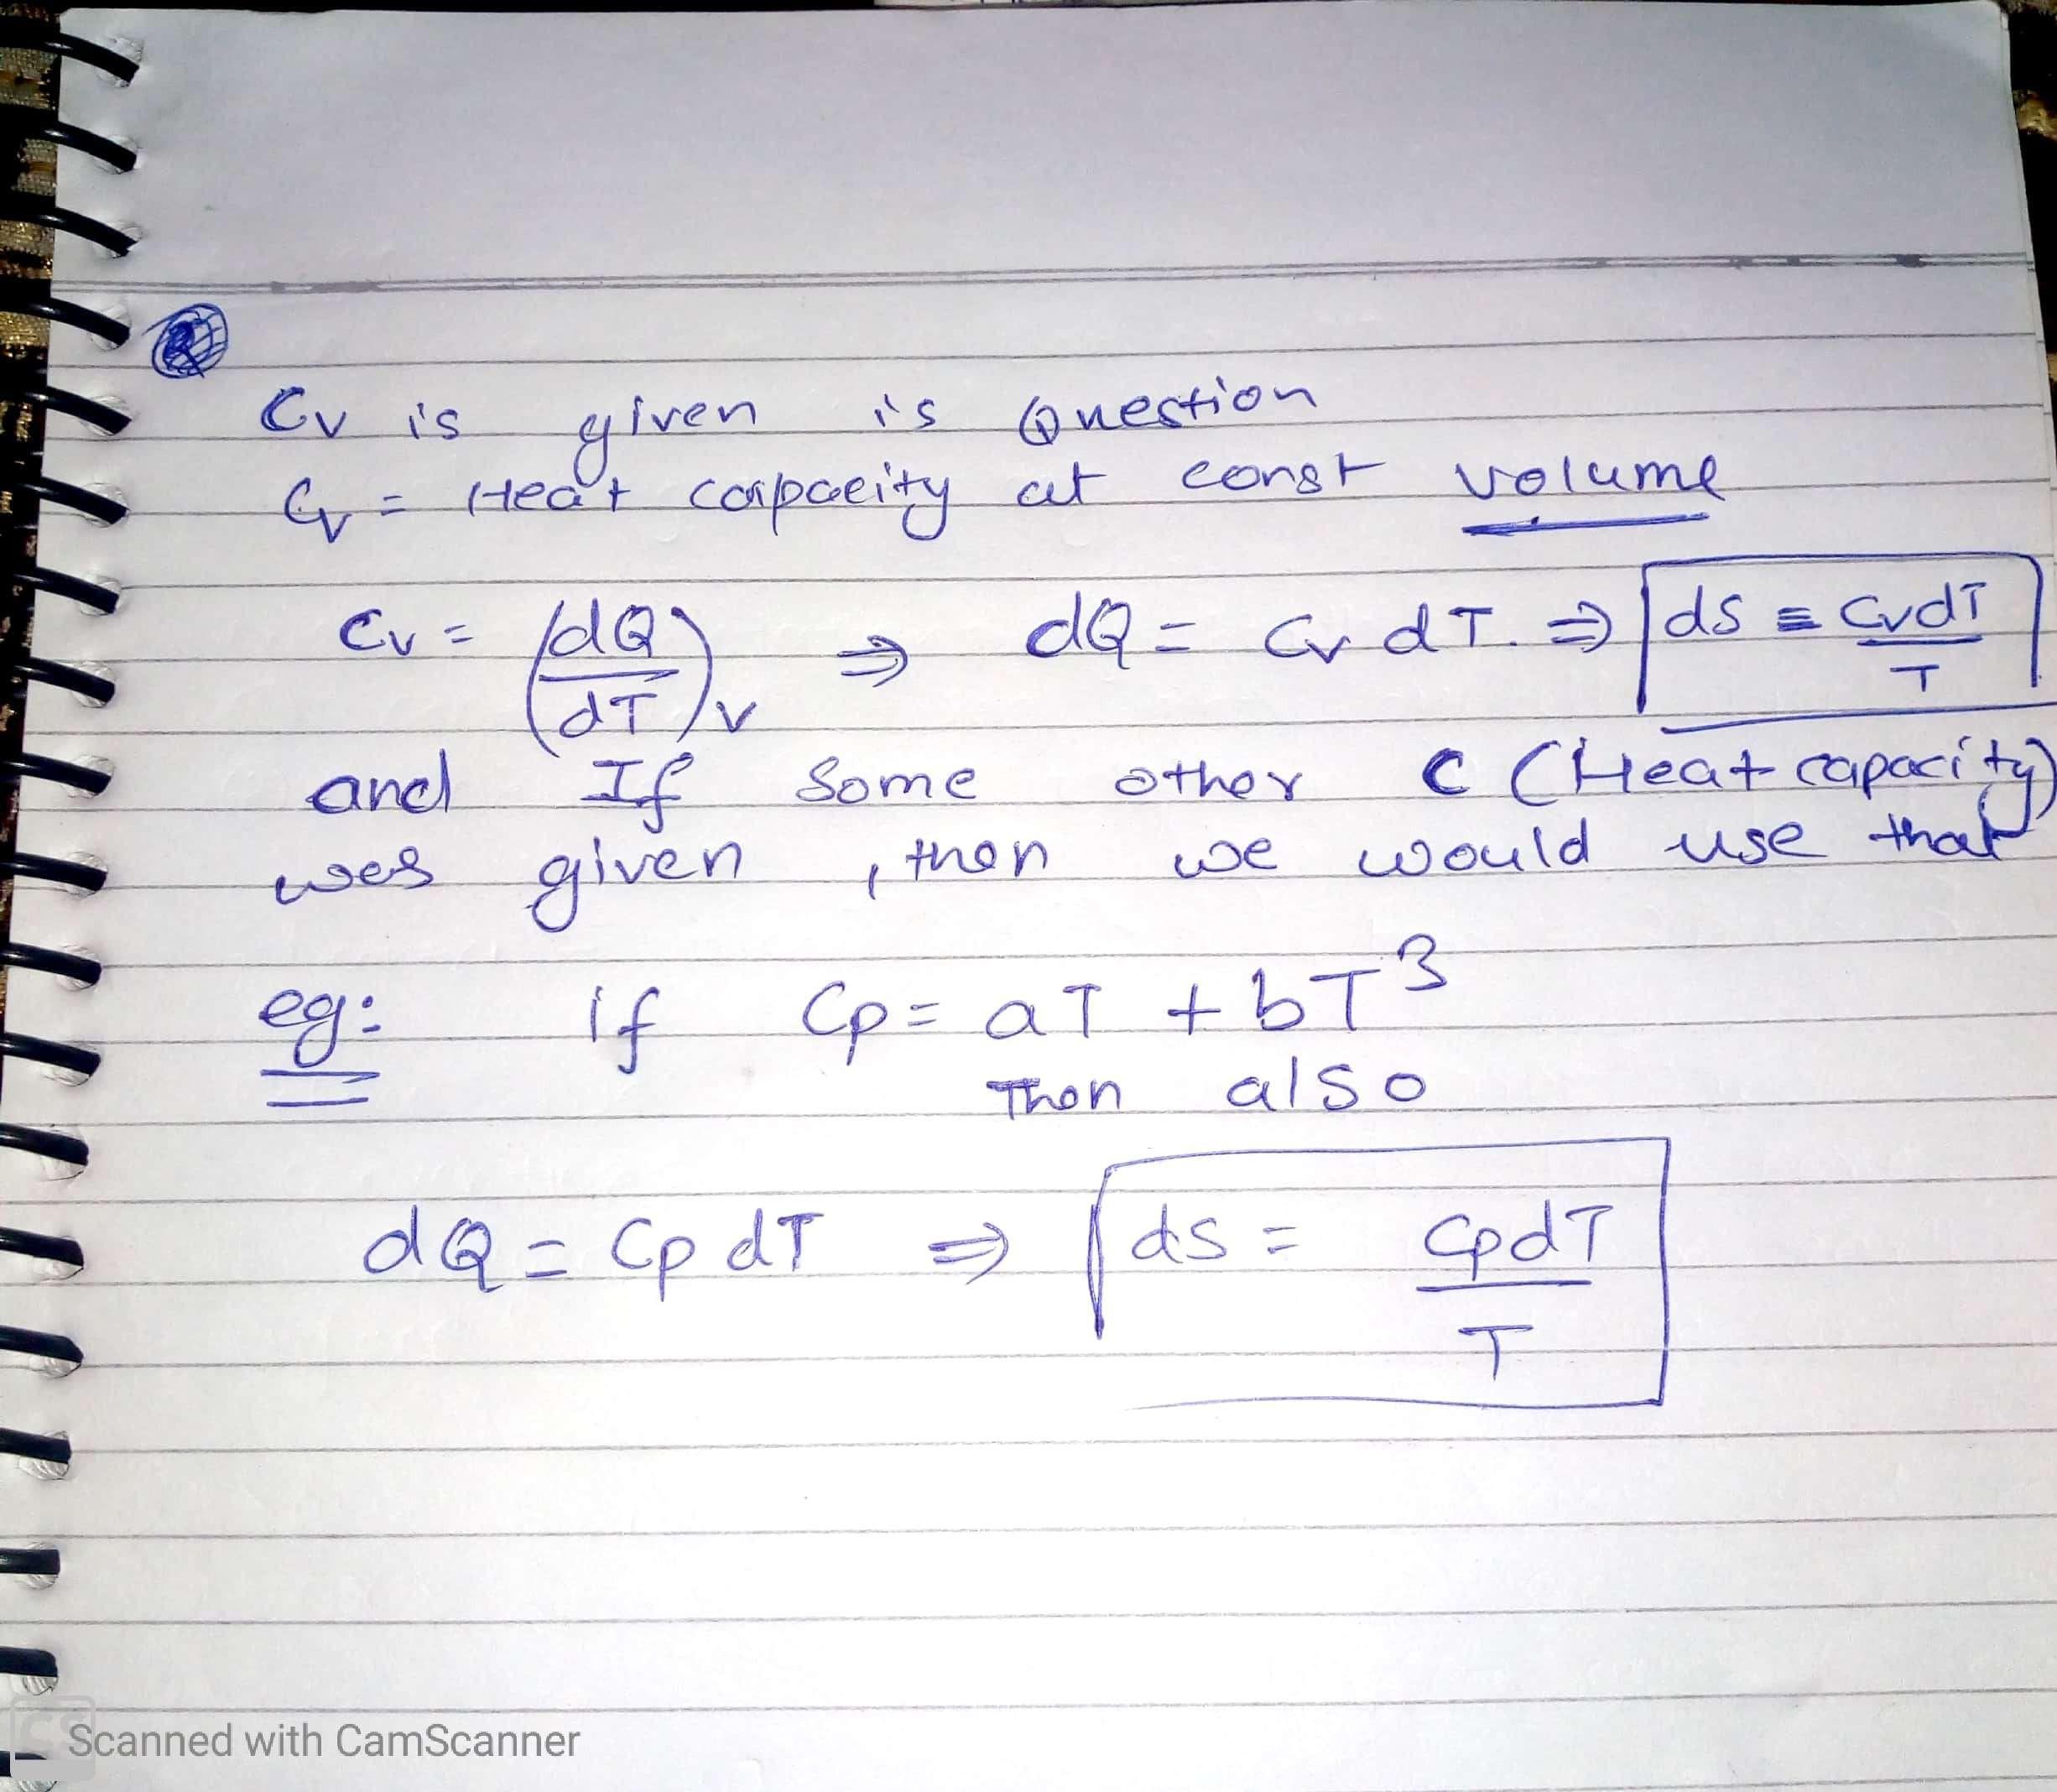 Cv is given is Question
Cv = Heat capacity at const volume
Cv = (dQ/dT)v ⇒ dQ = Cv dT. ⇒ dS = CvdT/T
and If Some other C (Heat capacity)
was given, then we would use that
eg: if Cp = aT + bT³
Then also
dQ = Cp dT ⇒ ds = CpdT/T
CS Scanned with CamScanner